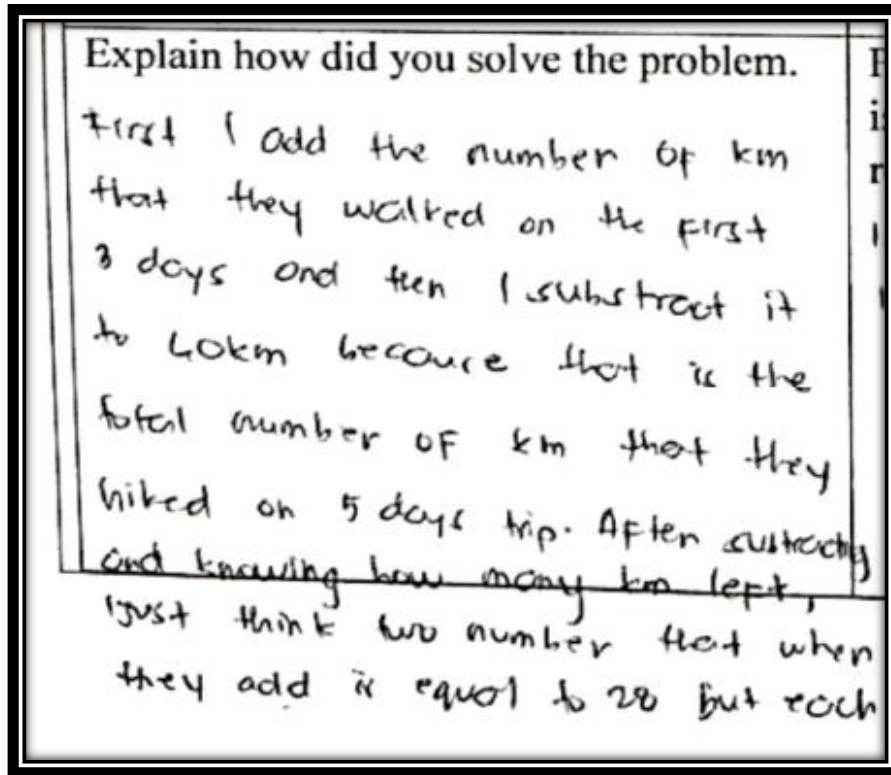 Explain how did you solve the problem.
First I add the number of km
that they walked on the first
3 days and then I substract it
to 40km because that is the
total number of km that they
hiked on 5 days trip. After
and knowing how many km left,
I just think two number that when
they add is equal to 28 but each